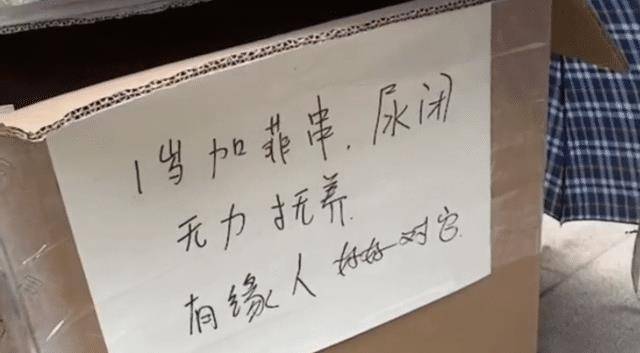 1岁加菲串.尿闭
无力抚养.
有缘人好好对它.